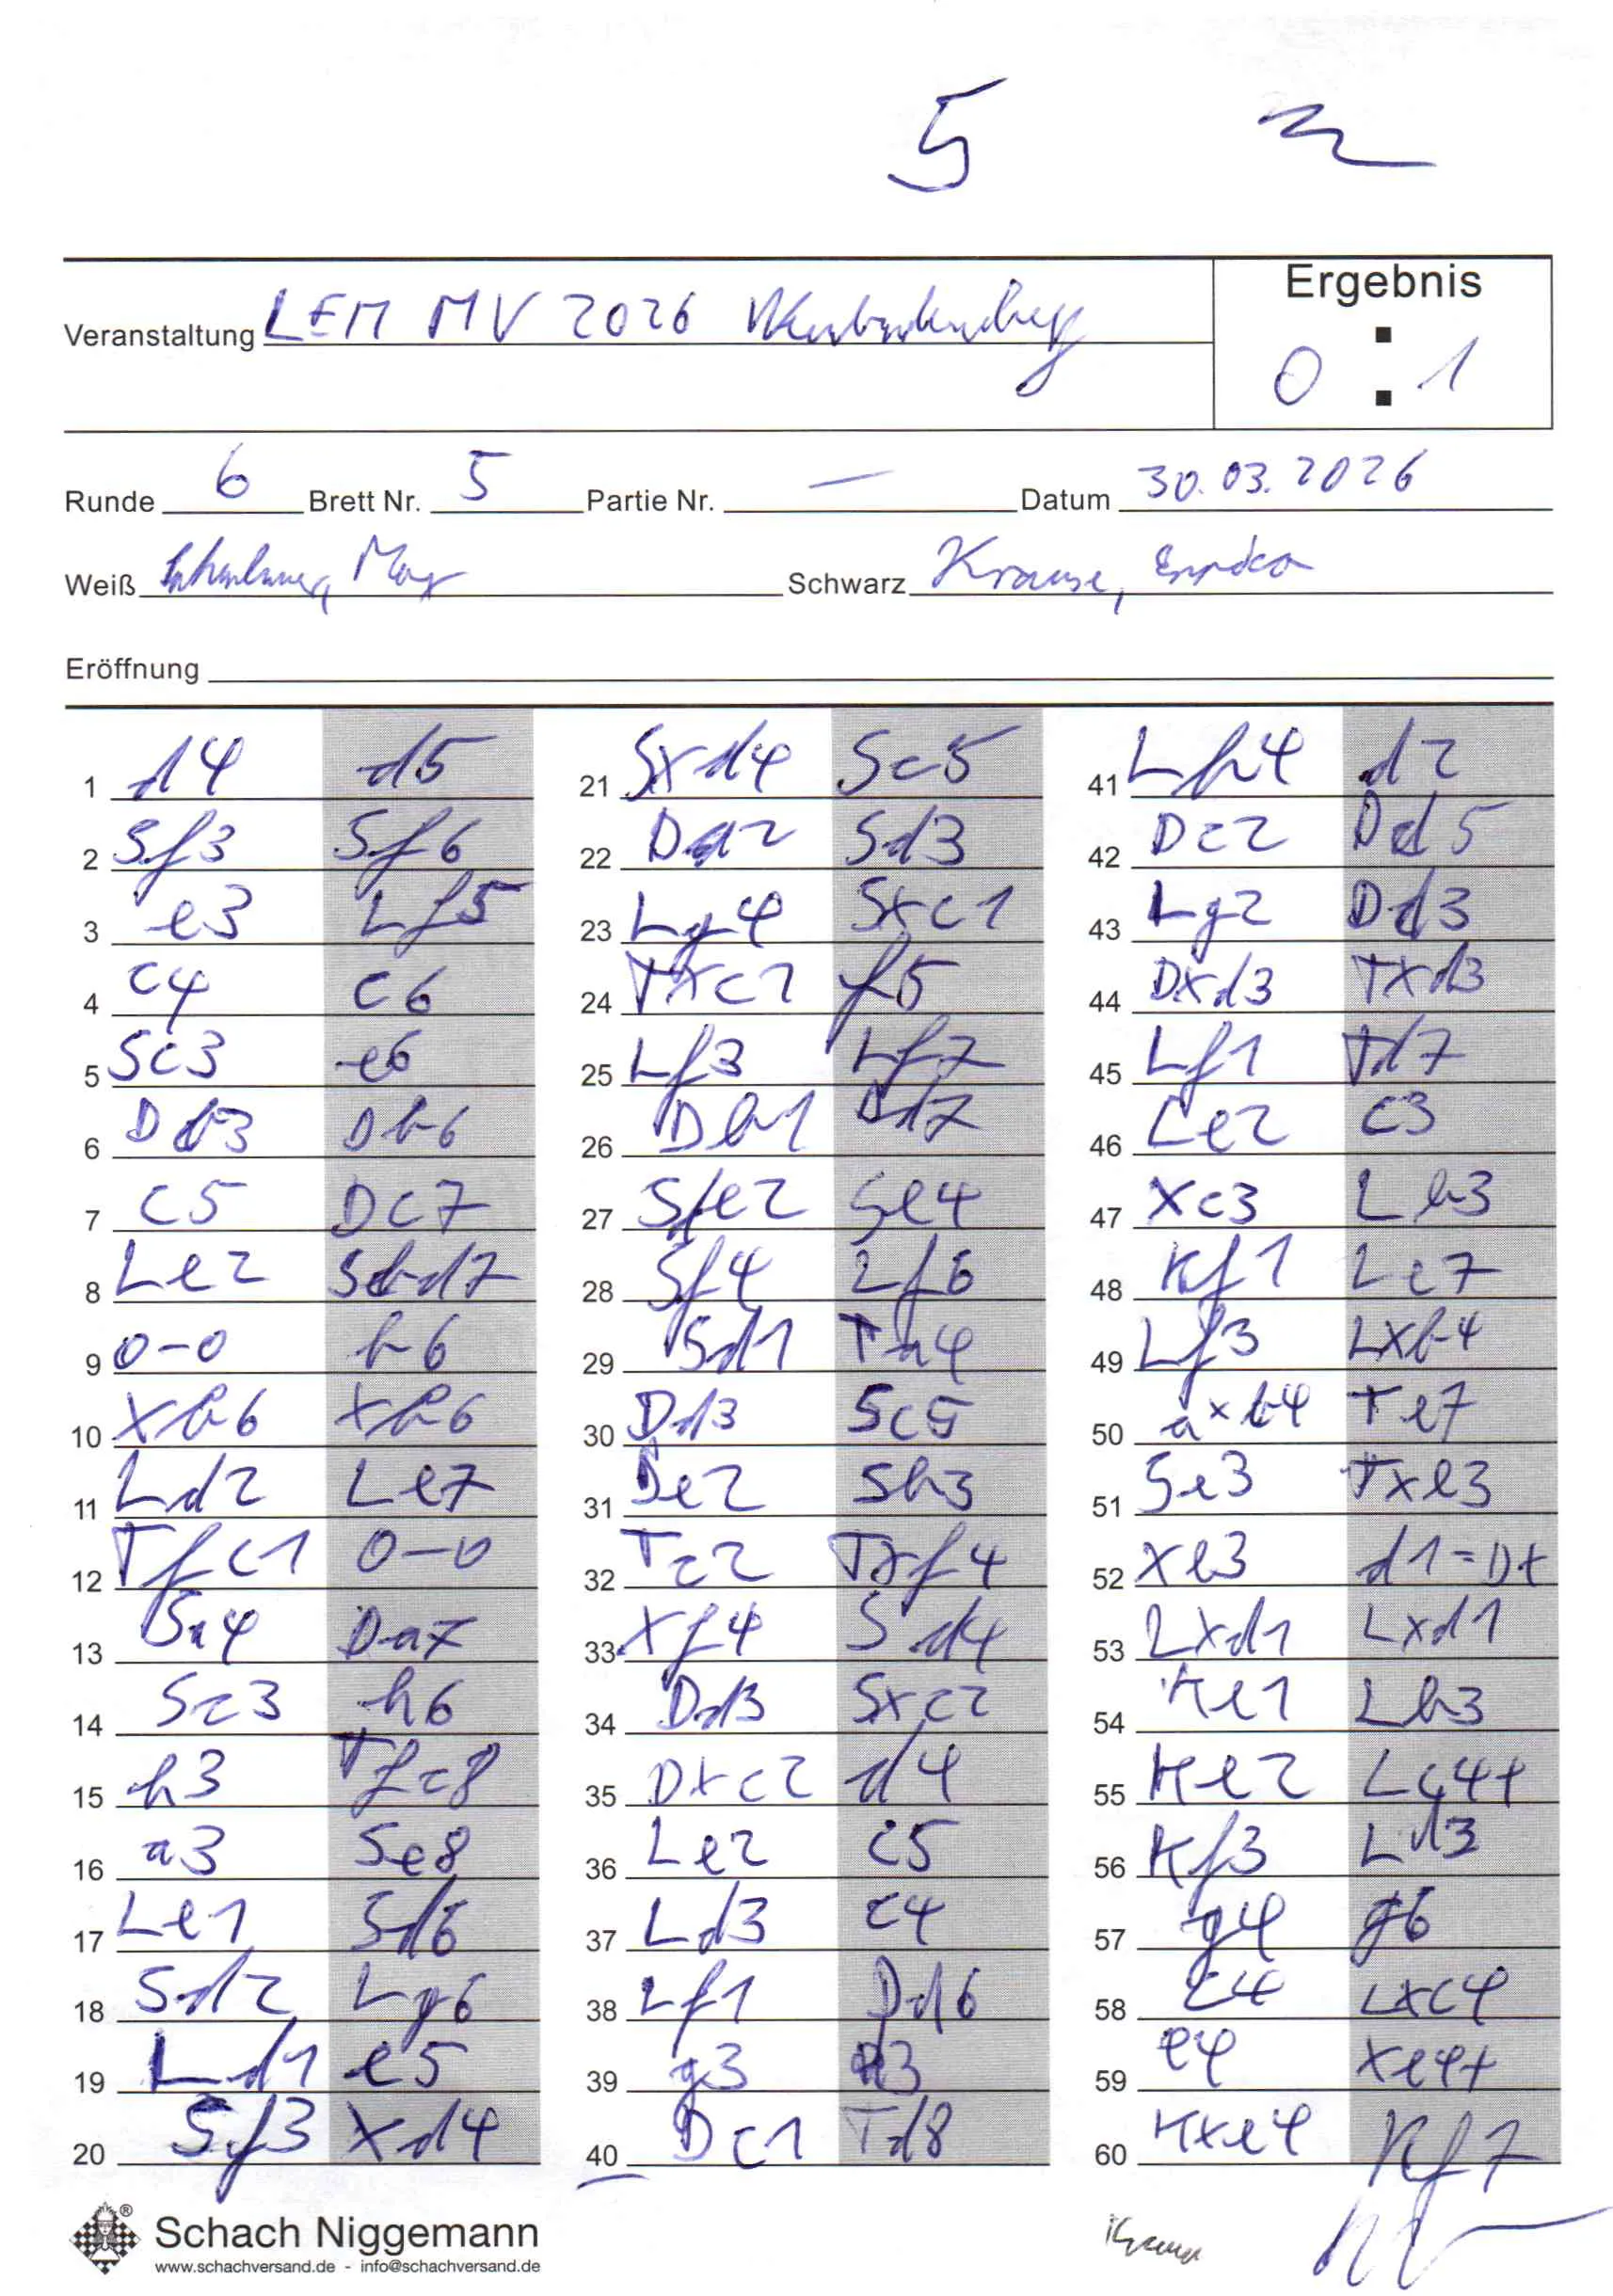 5
Veranstaltung LEM MV 2026
Ergebnis
0 : 1
Runde 6 Brett Nr. 5 Partie Nr. — Datum 30.03.2026
Weiß Schwarz Krause,
Eröffnung
1 d4 d5
2 Sf3 Sf6
3 e3 Lf5
4 c4 c6
5 Sc3 e6
6 Db3 Db6
7 c5 Dc7
8 Le2 Sbd7
9 0-0 b6
10 xb6 xb6
11 Ld2 Le7
12 Tfc1 0-0
13 Sa4 Da7
14 Sc3 h6
15 h3 Tfc8
16 a3 Se8
17 Le1 Sd6
18 Sd2 Lg6
19 Ld1 e5
20 Sf3 xd4
21 Sxd4 Sc5
22 Da2 Sd3
23 Lg4 Sxc1
24 Txc1 f5
25 Lf3 Lf7
26 Db1 Dd7
27 Sfe2 Se4
28 Sf4 Lf6
29 Sd1 Ta4
30 Dd3 Sc5
31 De2 Sb3
32 Tc2 Txf4
33 xf4 Sd4
34 Dd3 Sxc2
35 Dxc2 d4
36 Le2 c5
37 Ld3 c4
38 Lf1 Dd6
39 g3 d3
40 Dc1 Td8
41 Lh4 d2
42 Dc2 Dd5
43 Lg2 Dd3
44 Dxd3 Txd3
45 Lf1 Td7
46 Le2 c3
47 xc3 Lb3
48 Kf1 Le7
49 Lf3 Lxb4
50 axb4 Te7
51 Se3 Txe3
52 xe3 d1=D+
53 Lxd1 Lxd1
54 Ke1 Lb3
55 Ke2 Lc4+
56 Kf3 Ld3
57 g4 g6
58 c4 Lxc4
59 e4 xe4+
60 Kxe4 Kf7
Schach Niggemann
www.schachversand.de - info@schachversand.de